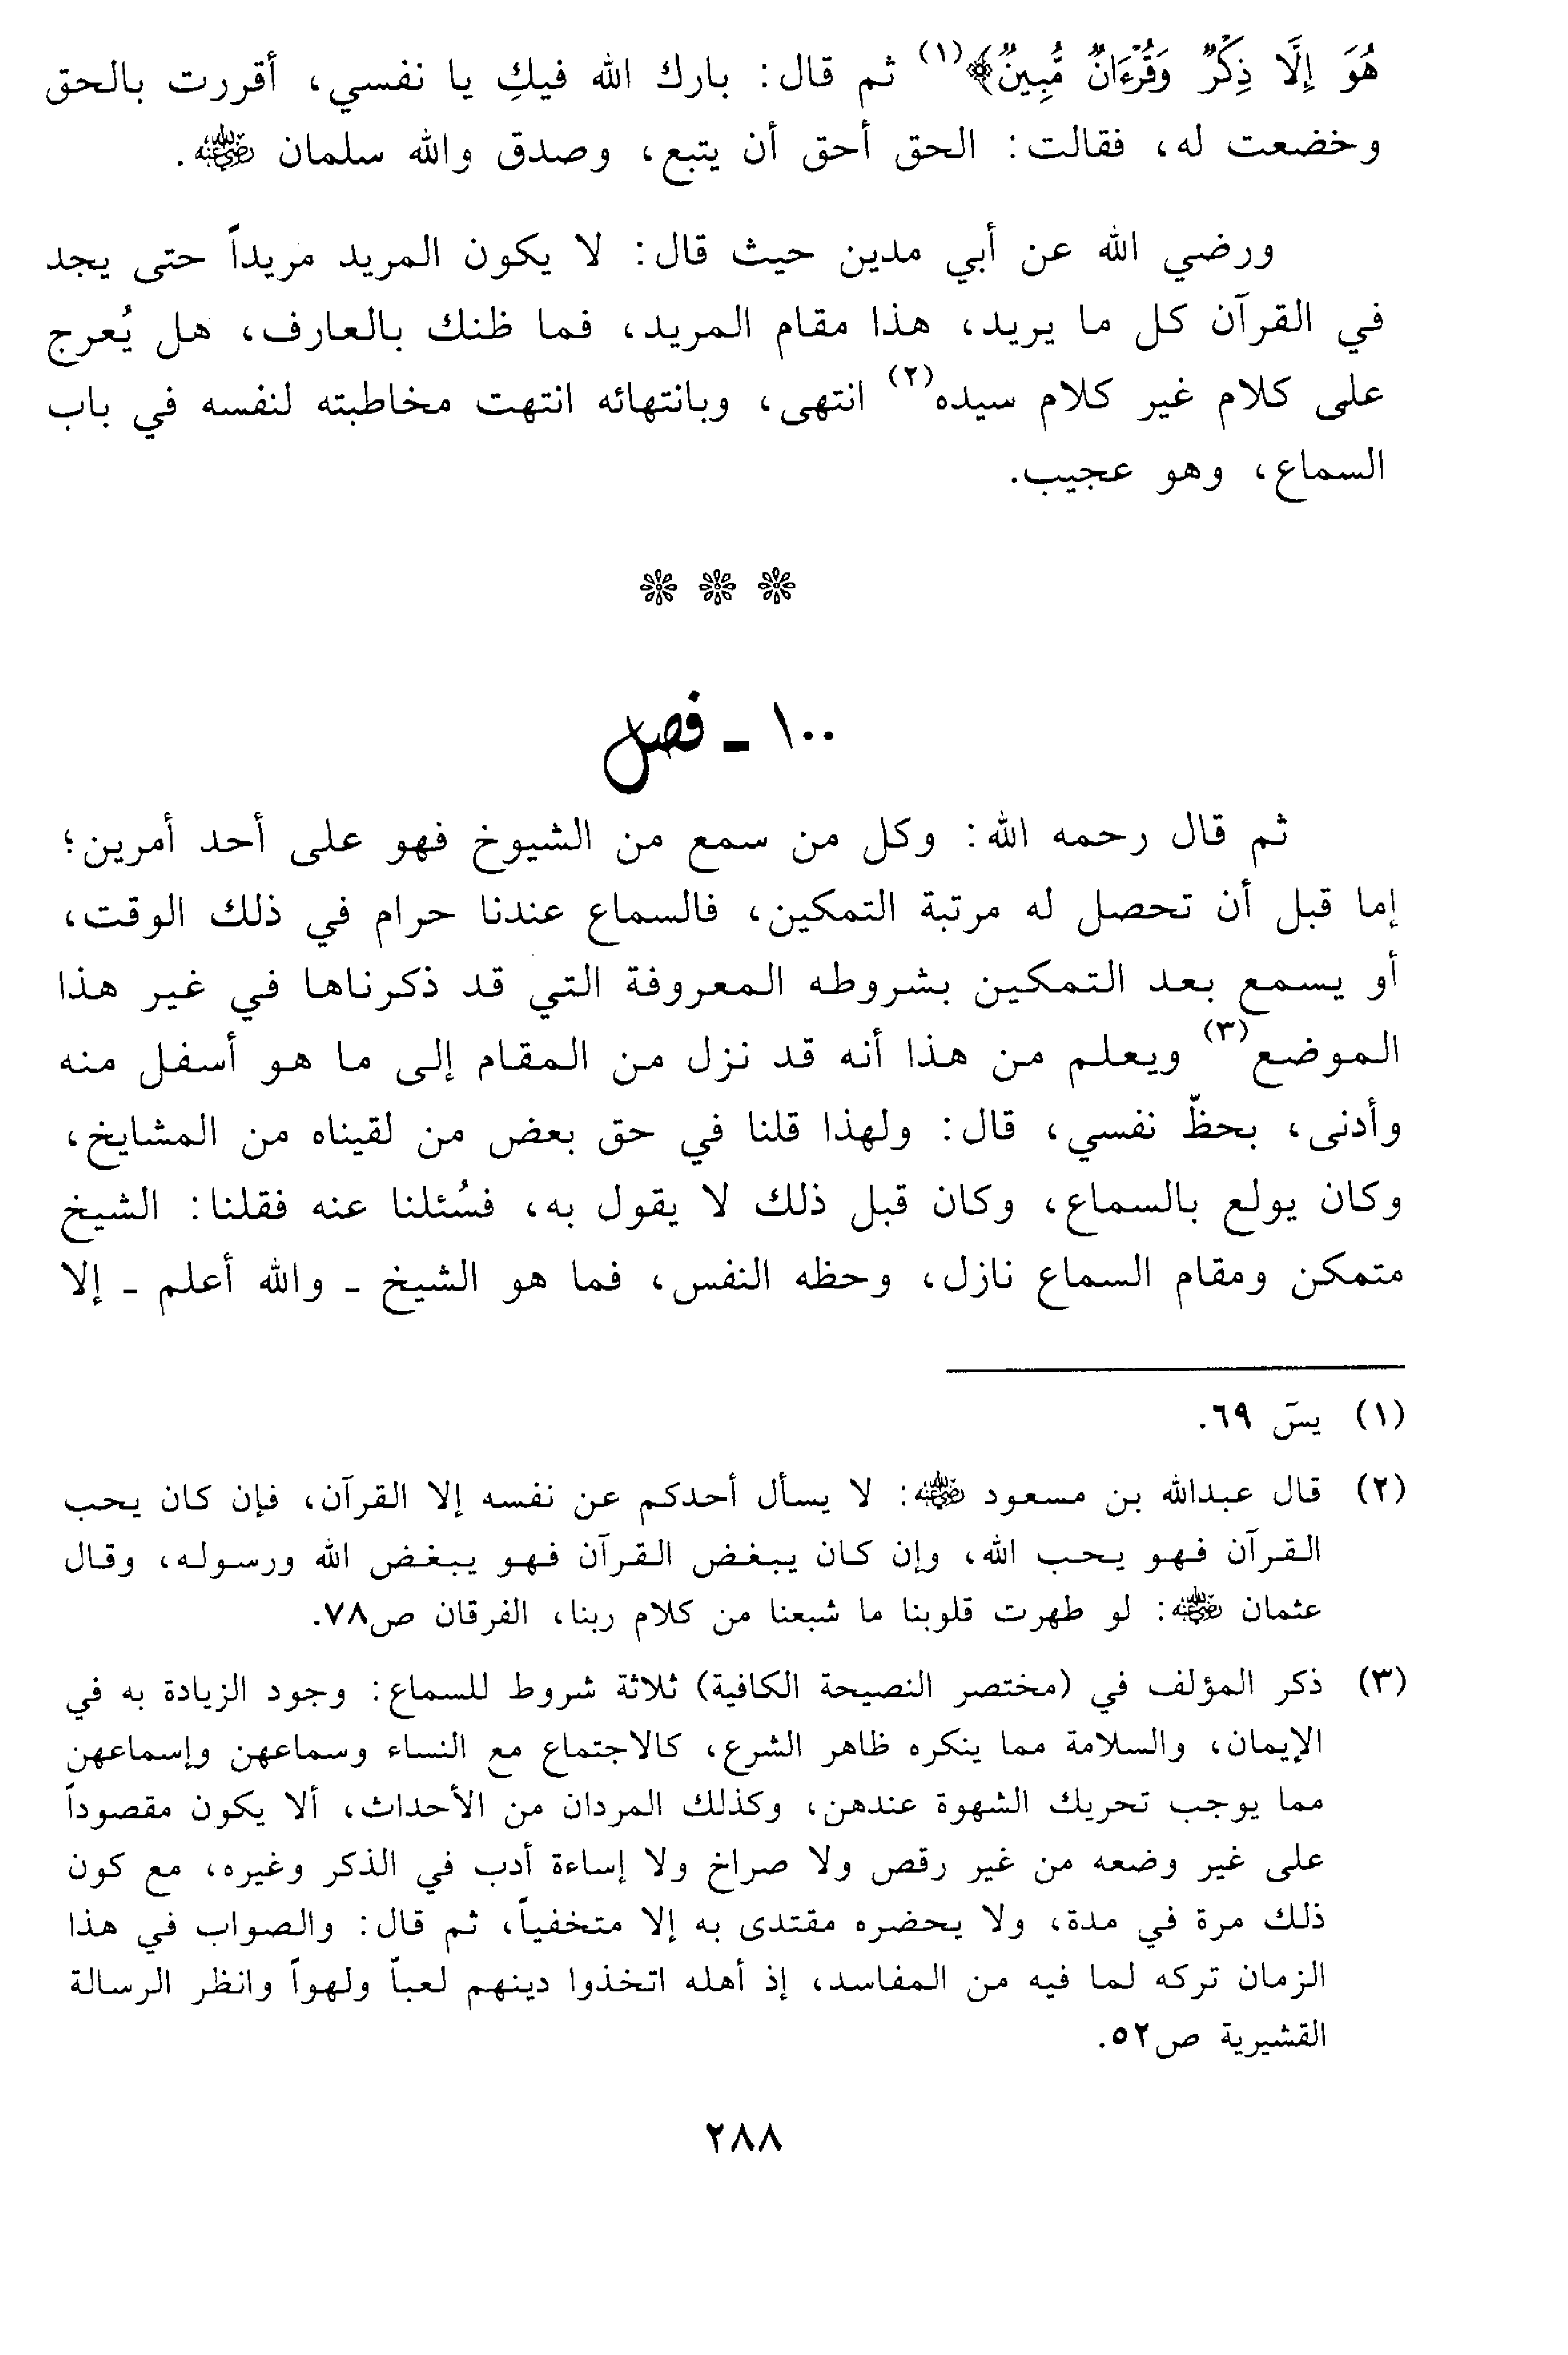 هُوَ إِلَّا ذِكْرٌ وَقُرْءَانٌ مُّبِينٌ﴾(١) ثم قال: بارك الله فيكِ يا نفسي، أقررت بالحق
وخضعت له، فقالت: الحق أحق أن يتبع، وصدق والله سلمان رضي الله عنه.
ورضي الله عن أبي مدين حيث قال: لا يكون المريد مريداً حتى يجد
في القرآن كل ما يريد، هذا مقام المريد، فما ظنك بالعارف، هل يُعرج
على كلام غير كلام سيده(٢) انتهى، وبانتهائه انتهت مخاطبته لنفسه في باب
السماع، وهو عجيب.
١٠٠ ـ فصل
ثم قال رحمه الله: وكل من سمع من الشيوخ فهو على أحد أمرين؛
إما قبل أن تحصل له مرتبة التمكين، فالسماع عندنا حرام في ذلك الوقت،
أو يسمع بعد التمكين بشروطه المعروفة التي قد ذكرناها في غير هذا
الموضع(٣) ويعلم من هذا أنه قد نزل من المقام إلى ما هو أسفل منه
وأدنى، بحظّ نفسي، قال: ولهذا قلنا في حق بعض من لقيناه من المشايخ،
وكان يولع بالسماع، وكان قبل ذلك لا يقول به، فسُئلنا عنه فقلنا: الشيخ
متمكن ومقام السماع نازل، وحظه النفس، فما هو الشيخ ـ والله أعلم ـ إلا
(١) يسَ ٦٩.
(٢) قال عبدالله بن مسعود رضي الله عنه: لا يسأل أحدكم عن نفسه إلا القرآن، فإن كان يحب
القرآن فهو يحب الله، وإن كان يبغض القرآن فهو يبغض الله ورسوله، وقال
عثمان رضي الله عنه: لو طهرت قلوبنا ما شبعنا من كلام ربنا، الفرقان ص٧٨.
(٣) ذكر المؤلف في (مختصر النصيحة الكافية) ثلاثة شروط للسماع: وجود الزيادة به في
الإيمان، والسلامة مما ينكره ظاهر الشرع، كالاجتماع مع النساء وسماعهن وإسماعهن
مما يوجب تحريك الشهوة عندهن، وكذلك المردان من الأحداث، ألا يكون مقصوداً
على غير وضعه من غير رقص ولا صراخ ولا إساءة أدب في الذكر وغيره، مع كون
ذلك مرة في مدة، ولا يحضره مقتدى به إلا متخفياً، ثم قال: والصواب في هذا
الزمان تركه لما فيه من المفاسد، إذ أهله اتخذوا دينهم لعباً ولهواً وانظر الرسالة
القشيرية ص٥٢.
٢٨٨